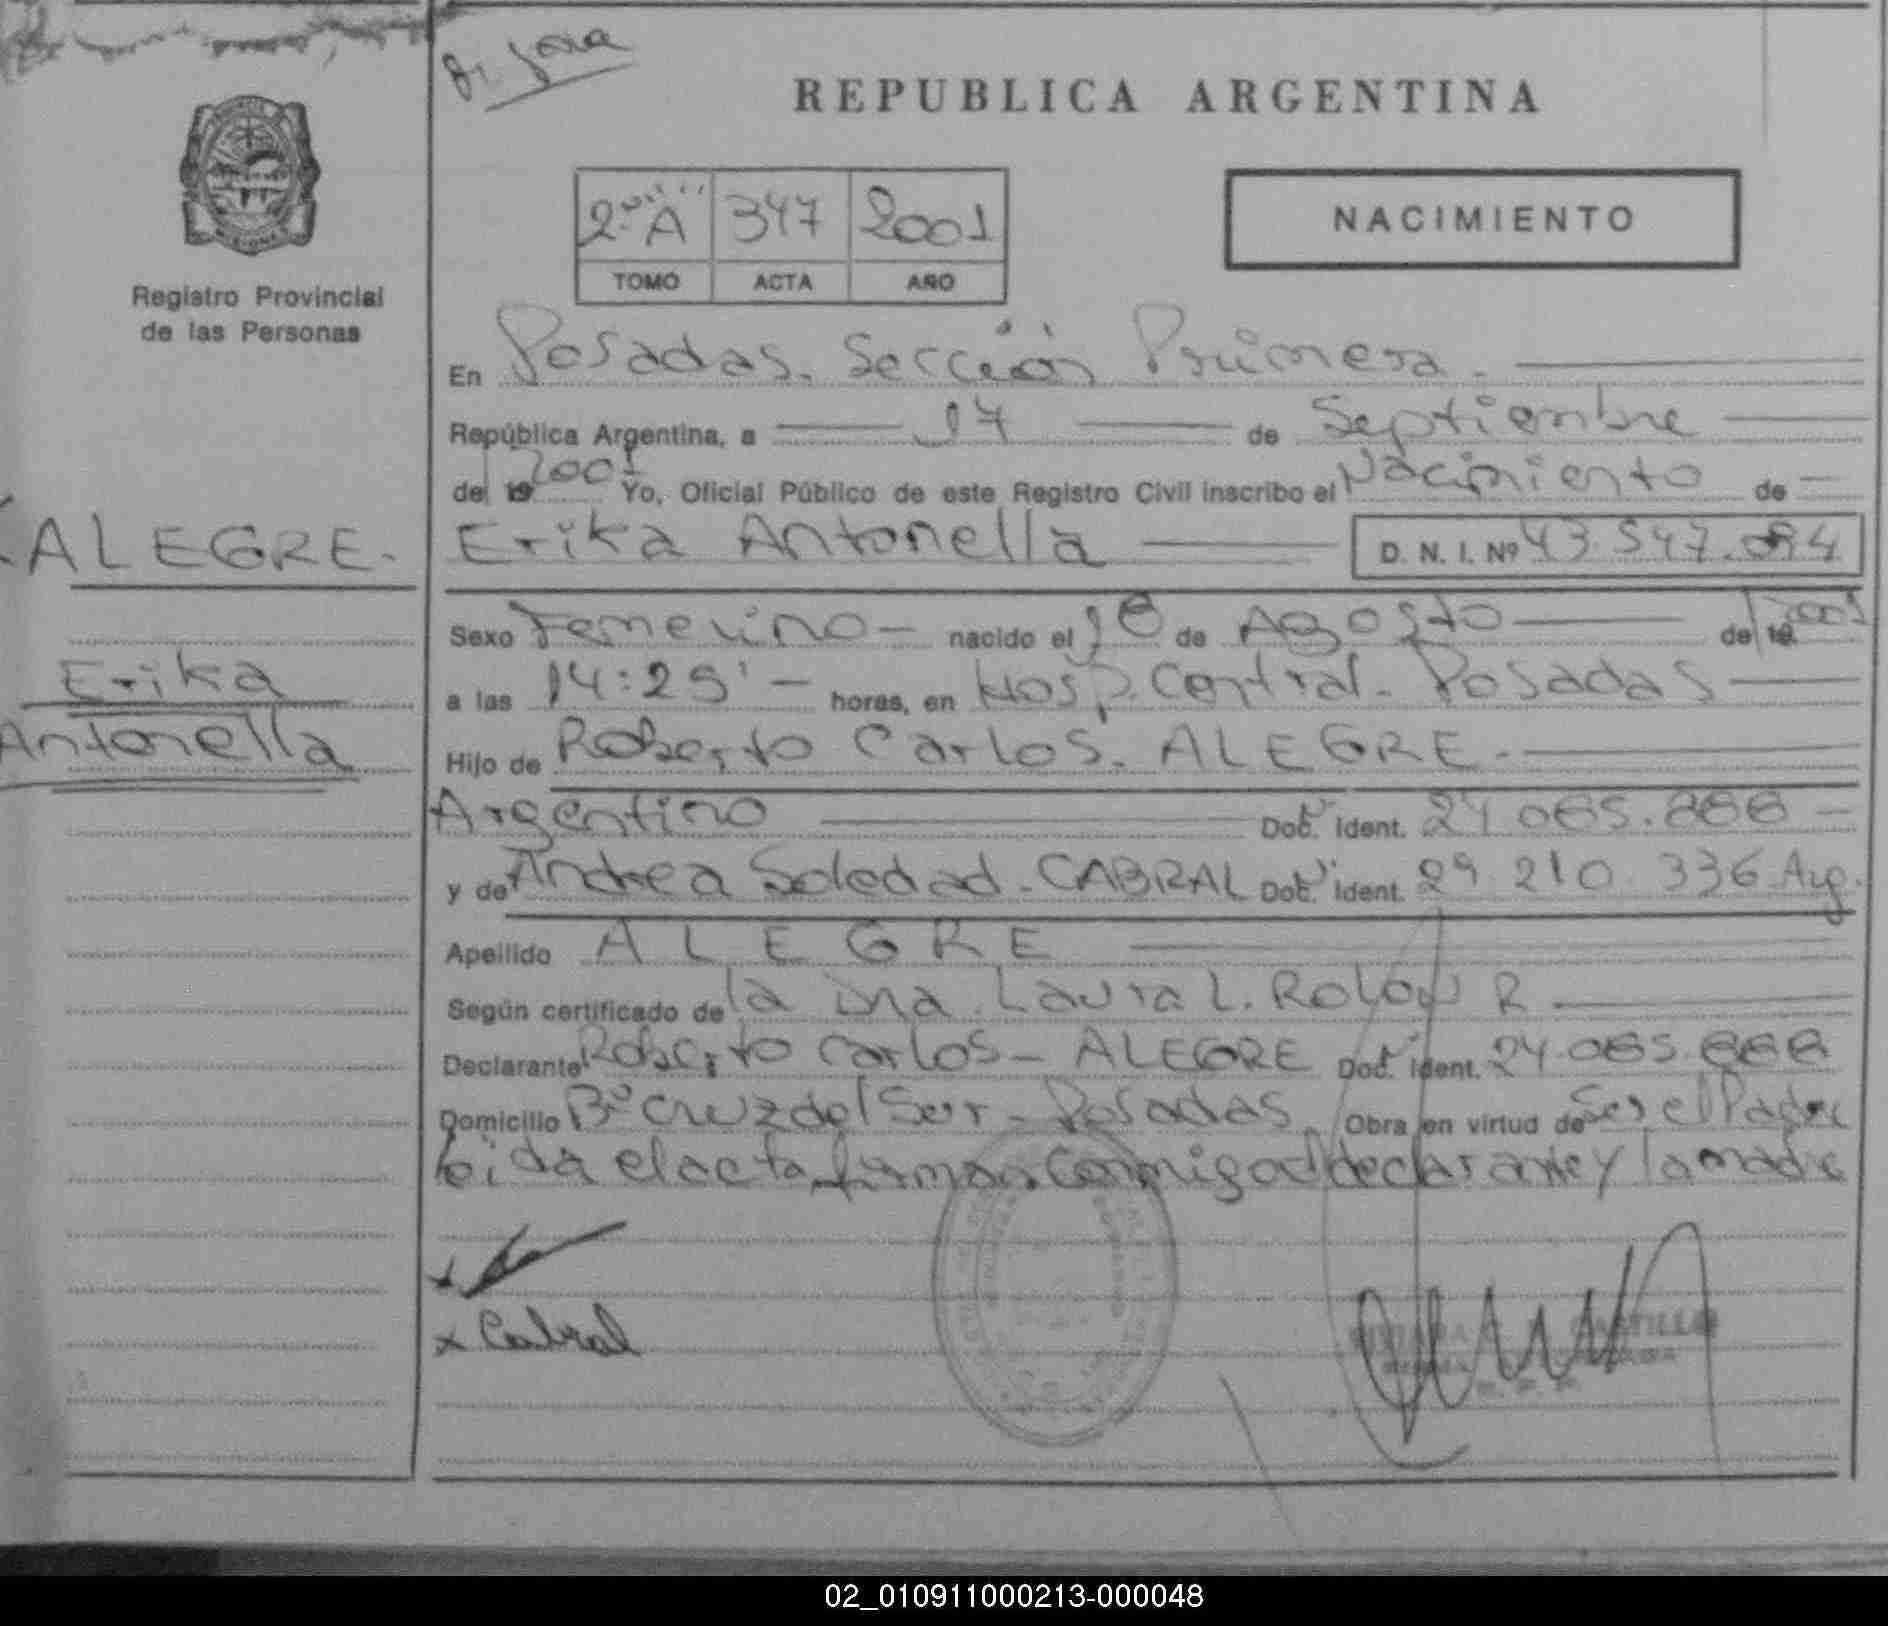 REPUBLICA ARGENTINA
2º "A" 347 2001
TOMO ACTA AÑO
NACIMIENTO
Registro Provincial
de las Personas
ALEGRE.
Erika
Antonella
En Posadas. Sección Primera.
República Argentina, a 17 de Septiembre
del 2001 Yo, Oficial Público de este Registro Civil inscribo el Nacimiento de
Erika Antonella D. N. I. Nº 43.547.
Sexo Femenino nacido el de Agosto de 2001
a las 14:25' horas, en Hosp. Central. Posadas
Hijo de Roberto Carlos. ALEGRE.
Argentino Doc. Ident. 24.065.888
y de Andrea Soledad. CABRAL Doc. Ident. 29.210.336 Arg.
Apellido ALEGRE
Según certificado de la Dra. Laura L. Rolón R
Declarante Roberto Carlos - ALEGRE Doc. Ident. 24.065.888
Domicilio Bº Cruz del Sur - Posadas. Obra en virtud de Ser el Padre
leida el acta firman conmigo el declarante y la madre
x
x Cabral
CASTILLO
02_010911000213-000048